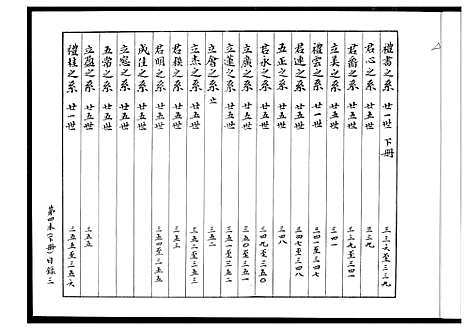 禮書之系 廿一世 下冊 三三六至三三九
君心之系 廿五世 三三九
君喬之系 廿五世 三三九至三四一
立美之系 廿五世 三四一
禮雲之系 廿一世 三四一至三四七
君連之系 廿五世 三四七至三四八
五正之系 廿五世 三四八
君永之系 廿五世 三四九至三五〇
立廣之系 廿五世 三五〇至三五一
立蓮之系 廿五世 三五一至三五二
立會之系 止 三五二
立杰之系 廿五世 三五二至三五三
君模之系 廿五世 三五三
君明之系 廿五世 三五四至三五五
成佳之系 廿五世
立恩之系 廿五世
五常之系 廿五世
立磁之系 廿五世 三五五
禮桂之系 廿一世 三五五至三五六
第四本(下冊)目錄三